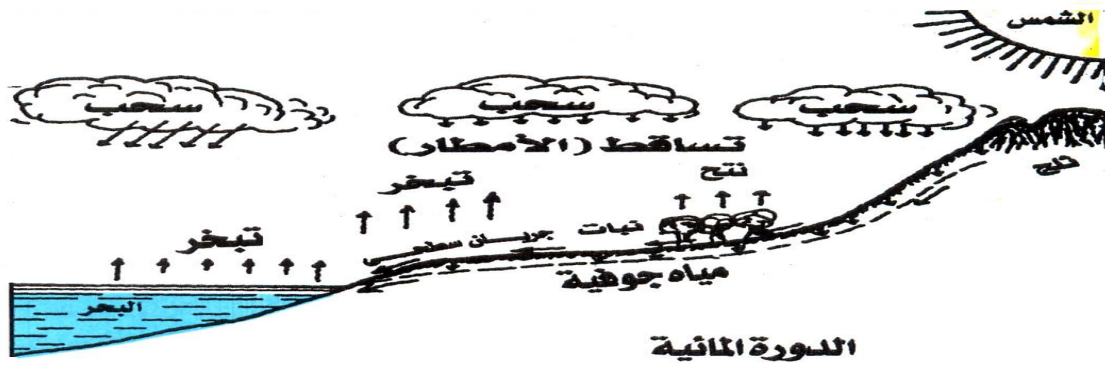 الشمس
سحب
سحب
سحب
تساقط (الأمطار)
ثلج
نتح
تبخر
نبات
جريان سطحي
تبخر
مياه جوفية
البحر
الدورة المائية